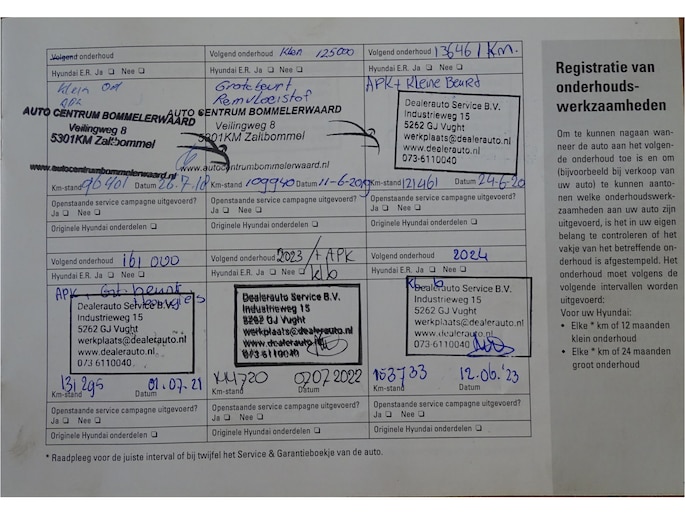 Volgend onderhoud
Hyundai E.R. Ja ☐ Nee ☐
Klein ond
APK
AUTO CENTRUM BOMMELERWAARD
Veilingweg 8
5301KM Zaltbommel
www.autocentrumbommelerwaard.nl
Km-stand 96401 Datum 26-7-18
Openstaande service campagne uitgevoerd?
Ja ☐ Nee ☐
Originele Hyundai onderdelen ☐
Volgend onderhoud Klein 125000
Hyundai E.R. Ja ☐ Nee ☐
Grote beurt
Remvloeistof
AUTO CENTRUM BOMMELERWAARD
Veilingweg 8
5301KM Zaltbommel
www.autocentrumbommelerwaard.nl
Km-stand 109940 Datum 11-6-2019
Openstaande service campagne uitgevoerd?
Ja ☐ Nee ☐
Originele Hyundai onderdelen ☐
Volgend onderhoud 136461 Km.
Hyundai E.R. Ja ☐ Nee ☐
APK + Kleine Beurt
Dealerauto Service B.V.
Industrieweg 15
5262 GJ Vught
werkplaats@dealerauto.nl
www.dealerauto.nl
073-6110040
Km-stand 121461 Datum 24-6-20
Openstaande service campagne uitgevoerd?
Ja ☐ Nee ☐
Originele Hyundai onderdelen ☐
Volgend onderhoud 161 000
Hyundai E.R. Ja ☐ Nee ☐
APK + Gr. beurt
Dealerauto Service B.V.
Industrieweg 15
5262 GJ Vught
werkplaats@dealerauto.nl
www.dealerauto.nl
073-6110040
131295 01.07.21
Km-stand Datum
Openstaande service campagne uitgevoerd?
Ja ☐ Nee ☐
Originele Hyundai onderdelen ☐
Volgend onderhoud 2023 / + APK
Hyundai E.R. Ja ☐ Nee ☐ klb
Dealerauto Service B.V.
Industrieweg 15
5262 GJ Vught
werkplaats@dealerauto.nl
www.dealerauto.nl
073-6110040
0707 2022
Km-stand Datum
Openstaande service campagne uitgevoerd?
Ja ☐ Nee ☐
Originele Hyundai onderdelen ☐
Volgend onderhoud 2024
Hyundai E.R. Ja ☐ Nee ☐
Dealerauto Service B.V.
Industrieweg 15
5262 GJ Vught
werkplaats@dealerauto.nl
www.dealerauto.nl
073-6110040
153733 12.06.'23
Km-stand Datum
Openstaande service campagne uitgevoerd?
Ja ☐ Nee ☐
Originele Hyundai onderdelen ☐
* Raadpleeg voor de juiste interval of bij twijfel het Service & Garantieboekje van de auto.
Registratie van
onderhouds-
werkzaamheden
Om te kunnen nagaan wan-
neer de auto aan het volgen-
de onderhoud toe is en om
(bijvoorbeeld bij verkoop van
uw auto) te kunnen aanto-
nen welke onderhoudswerk-
zaamheden aan uw auto zijn
uitgevoerd, is het in uw eigen
belang te controleren of het
vakje van het betreffende on-
derhoud is afgestempeld. Het
onderhoud moet volgens de
volgende intervallen worden
uitgevoerd:
Voor uw Hyundai:
• Elke * km of 12 maanden
klein onderhoud
• Elke * km of 24 maanden
groot onderhoud